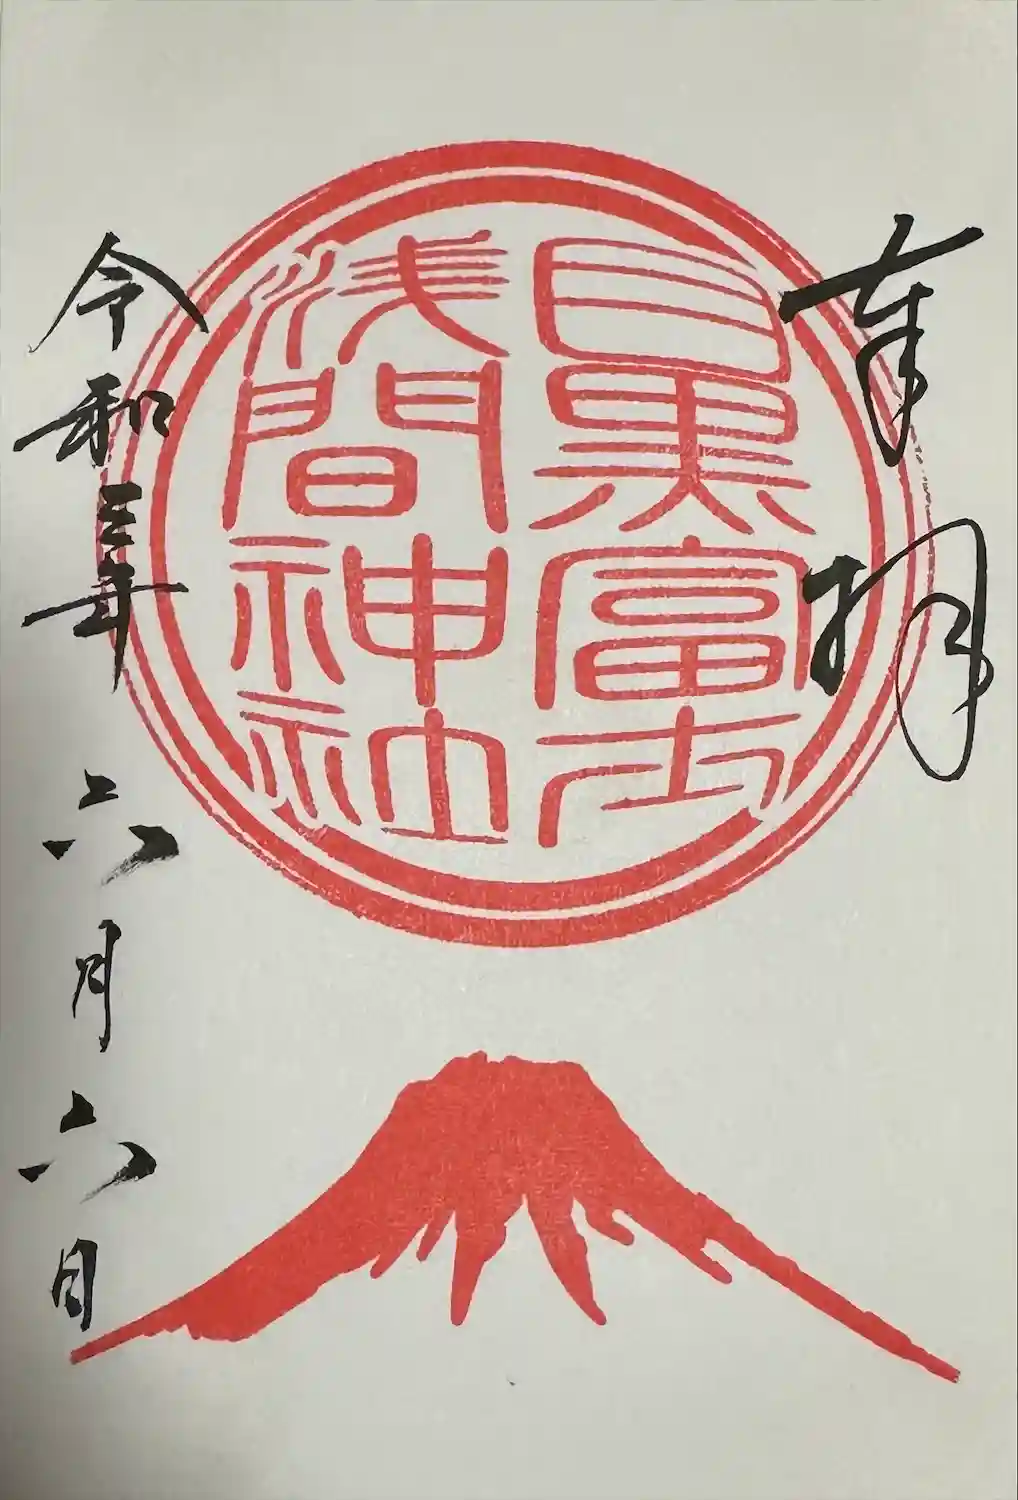 奉拝
目黒富士
浅間神社
令和三年六月六日